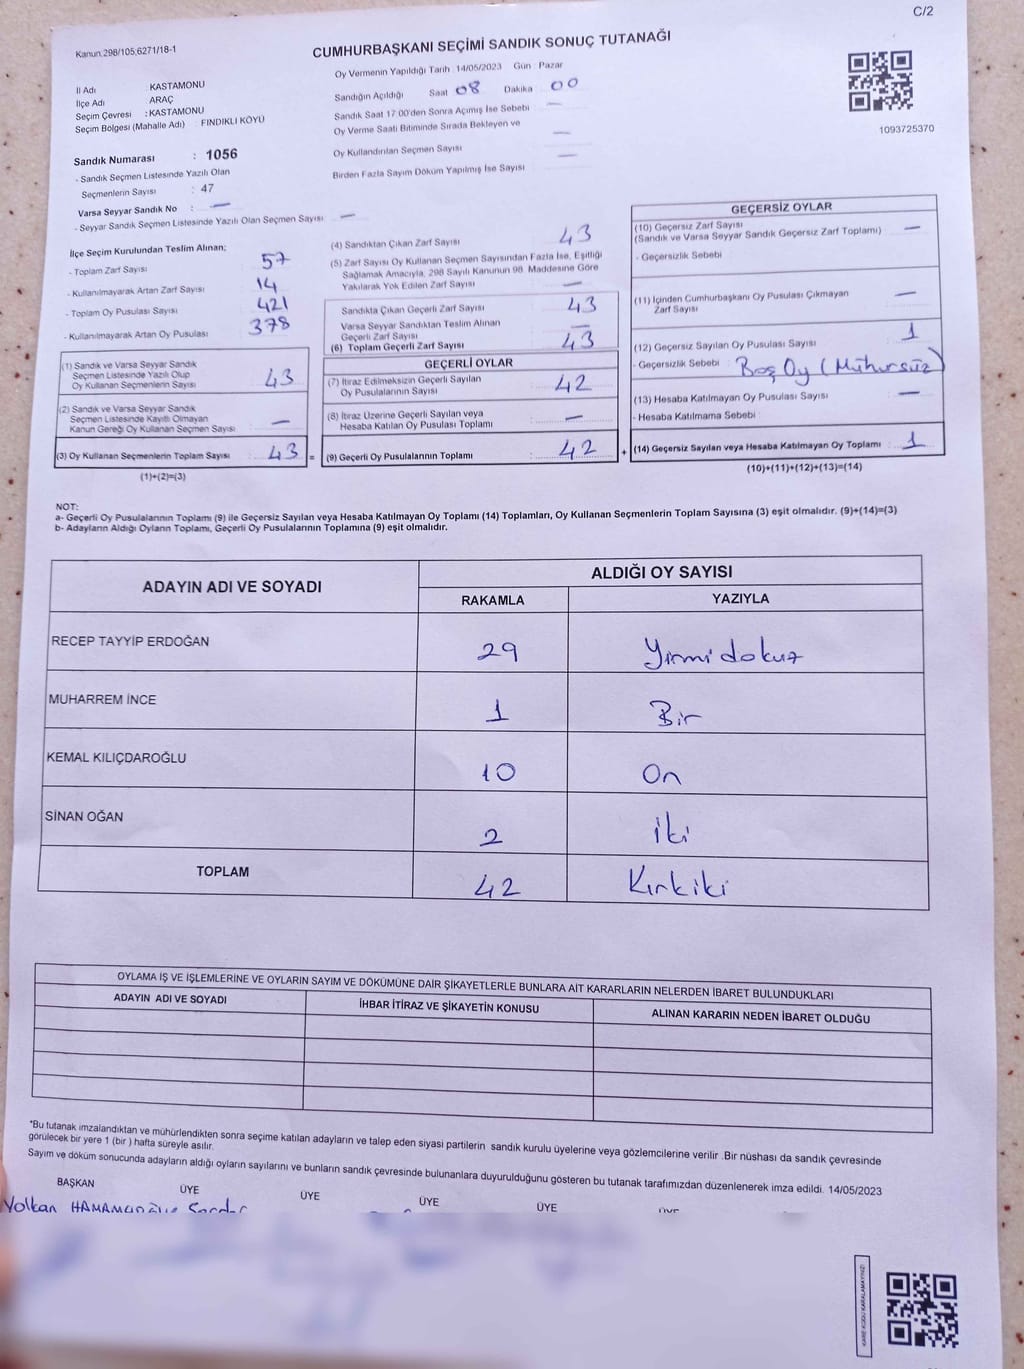 C/2
Kanun.298/105,6271/18-1
CUMHURBAŞKANI SEÇİMİ SANDIK SONUÇ TUTANAĞI
İl Adı : KASTAMONU
İlçe Adı ARAÇ
Seçim Çevresi : KASTAMONU
Seçim Bölgesi (Mahalle Adı) : FINDIKLI KÖYÜ
Sandık Numarası : 1056
- Sandık Seçmen Listesinde Yazılı Olan
Seçmenlerin Sayısı : 47
Varsa Seyyar Sandık No : —
- Seyyar Sandık Seçmen Listesinde Yazılı Olan Seçmen Sayısı —
Oy Vermenin Yapıldığı Tarih : 14/05/2023 Gün : Pazar
Sandığın Açıldığı Saat 08 Dakika 00
Sandık Saat 17:00'den Sonra Açımış İse Sebebi —
Oy Verme Saati Bitiminde Sırada Bekleyen ve
Oy Kullandırılan Seçmen Sayısı —
Birden Fazla Sayım Döküm Yapılmış İse Sayısı —
1093725370
İlçe Seçim Kurulundan Teslim Alınan;
- Toplam Zarf Sayısı 57
- Kullanılmayarak Artan Zarf Sayısı 14
- Toplam Oy Pusulası Sayısı 421
- Kullanılmayarak Artan Oy Pusulası 378
(1) Sandık ve Varsa Seyyar Sandık
Seçmen Listesinde Yazılı Olup
Oy Kullanan Seçmenlerin Sayısı : 43
(2) Sandık ve Varsa Seyyar Sandık
Seçmen Listesinde Kayıtlı Olmayan
Kanun Gereği Oy Kullanan Seçmen Sayısı : —
(3) Oy Kullanan Seçmenlerin Toplam Sayısı : 43 =
(1)+(2)=(3)
(4) Sandıktan Çıkan Zarf Sayısı 43
(5) Zarf Sayısı Oy Kullanan Seçmen Sayısından Fazla İse, Eşitliği
Sağlamak Amacıyla, 298 Sayılı Kanunun 98. Maddesine Göre
Yakılarak Yok Edilen Zarf Sayısı —
Sandıkta Çıkan Geçerli Zarf Sayısı 43
Varsa Seyyar Sandıktan Teslim Alınan
Geçerli Zarf Sayısı —
(6) Toplam Geçerli Zarf Sayısı 43
GEÇERLİ OYLAR
(7) İtiraz Edilmeksizin Geçerli Sayılan
Oy Pusulalarının Sayısı 42
(8) İtiraz Üzerine Geçerli Sayılan veya
Hesaba Katılan Oy Pusulası Toplamı : —
(9) Geçerli Oy Pusulalarının Toplamı : 42 +
GEÇERSİZ OYLAR
(10) Geçersiz Zarf Sayısı
(Sandık ve Varsa Seyyar Sandık Geçersiz Zarf Toplamı) —
- Geçersizlik Sebebi
(11) İçinden Cumhurbaşkanı Oy Pusulası Çıkmayan
Zarf Sayısı —
(12) Geçersiz Sayılan Oy Pusulası Sayısı 1
- Geçersizlik Sebebi Boş Oy (Mühürsüz)
(13) Hesaba Katılmayan Oy Pusulası Sayısı —
- Hesaba Katılmama Sebebi
(14) Geçersiz Sayılan veya Hesaba Katılmayan Oy Toplamı : 1
(10)+(11)+(12)+(13)=(14)
NOT:
a- Geçerli Oy Pusulalarının Toplamı (9) ile Geçersiz Sayılan veya Hesaba Katılmayan Oy Toplamı (14) Toplamları, Oy Kullanan Seçmenlerin Toplam Sayısına (3) eşit olmalıdır. (9)+(14)=(3)
b- Adayların Aldığı Oyların Toplamı, Geçerli Oy Pusulalarının Toplamına (9) eşit olmalıdır.
ADAYIN ADI VE SOYADI ALDIĞI OY SAYISI
RAKAMLA YAZIYLA
RECEP TAYYİP ERDOĞAN 29 Yirmi dokuz
MUHARREM İNCE 1 Bir
KEMAL KILIÇDAROĞLU 10 On
SİNAN OĞAN 2 İki
TOPLAM 42 Kırkiki
OYLAMA İŞ VE İŞLEMLERİNE VE OYLARIN SAYIM VE DÖKÜMÜNE DAİR ŞİKAYETLERLE BUNLARA AİT KARARLARIN NELERDEN İBARET BULUNDUKLARI
ADAYIN ADI VE SOYADI İHBAR İTİRAZ VE ŞİKAYETİN KONUSU ALINAN KARARIN NEDEN İBARET OLDUĞU
*Bu tutanak imzalandıktan ve mühürlendikten sonra seçime katılan adayların ve talep eden siyasi partilerin sandık kurulu üyelerine veya gözlemcilerine verilir .Bir nüshası da sandık çevresinde
görülecek bir yere 1 (bir ) hafta süreyle asılır.
Sayım ve döküm sonucunda adayların aldığı oyların sayılarını ve bunların sandık çevresinde bulunanlara duyurulduğunu gösteren bu tutanak tarafımızdan düzenlenerek imza edildi. 14/05/2023
BAŞKAN ÜYE ÜYE ÜYE ÜYE ÜYE
Volkan
KARE KODU KARALAMAYINIZ!